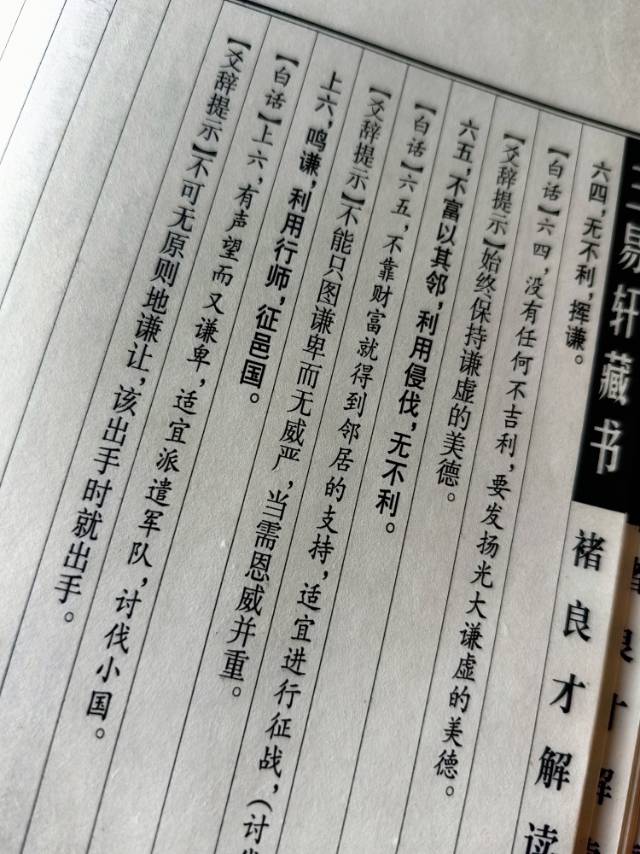 易轩藏书
褚良才解读
六四，无不利，㧑谦。
【白话】六四，没有任何不吉利，要发扬光大谦虚的美德。
【爻辞提示】始终保持谦虚的美德。
六五，不富以其邻，利用侵伐，无不利。
【白话】六五，不靠财富就得到邻居的支持，适宜进行征战，（讨
【爻辞提示】不能只图谦卑而无威严，当需恩威并重。
上六，鸣谦，利用行师，征邑国。
【白话】上六，有声望而又谦卑，适宜派遣军队，讨伐小国。
【爻辞提示】不可无原则地谦让，该出手时就出手。